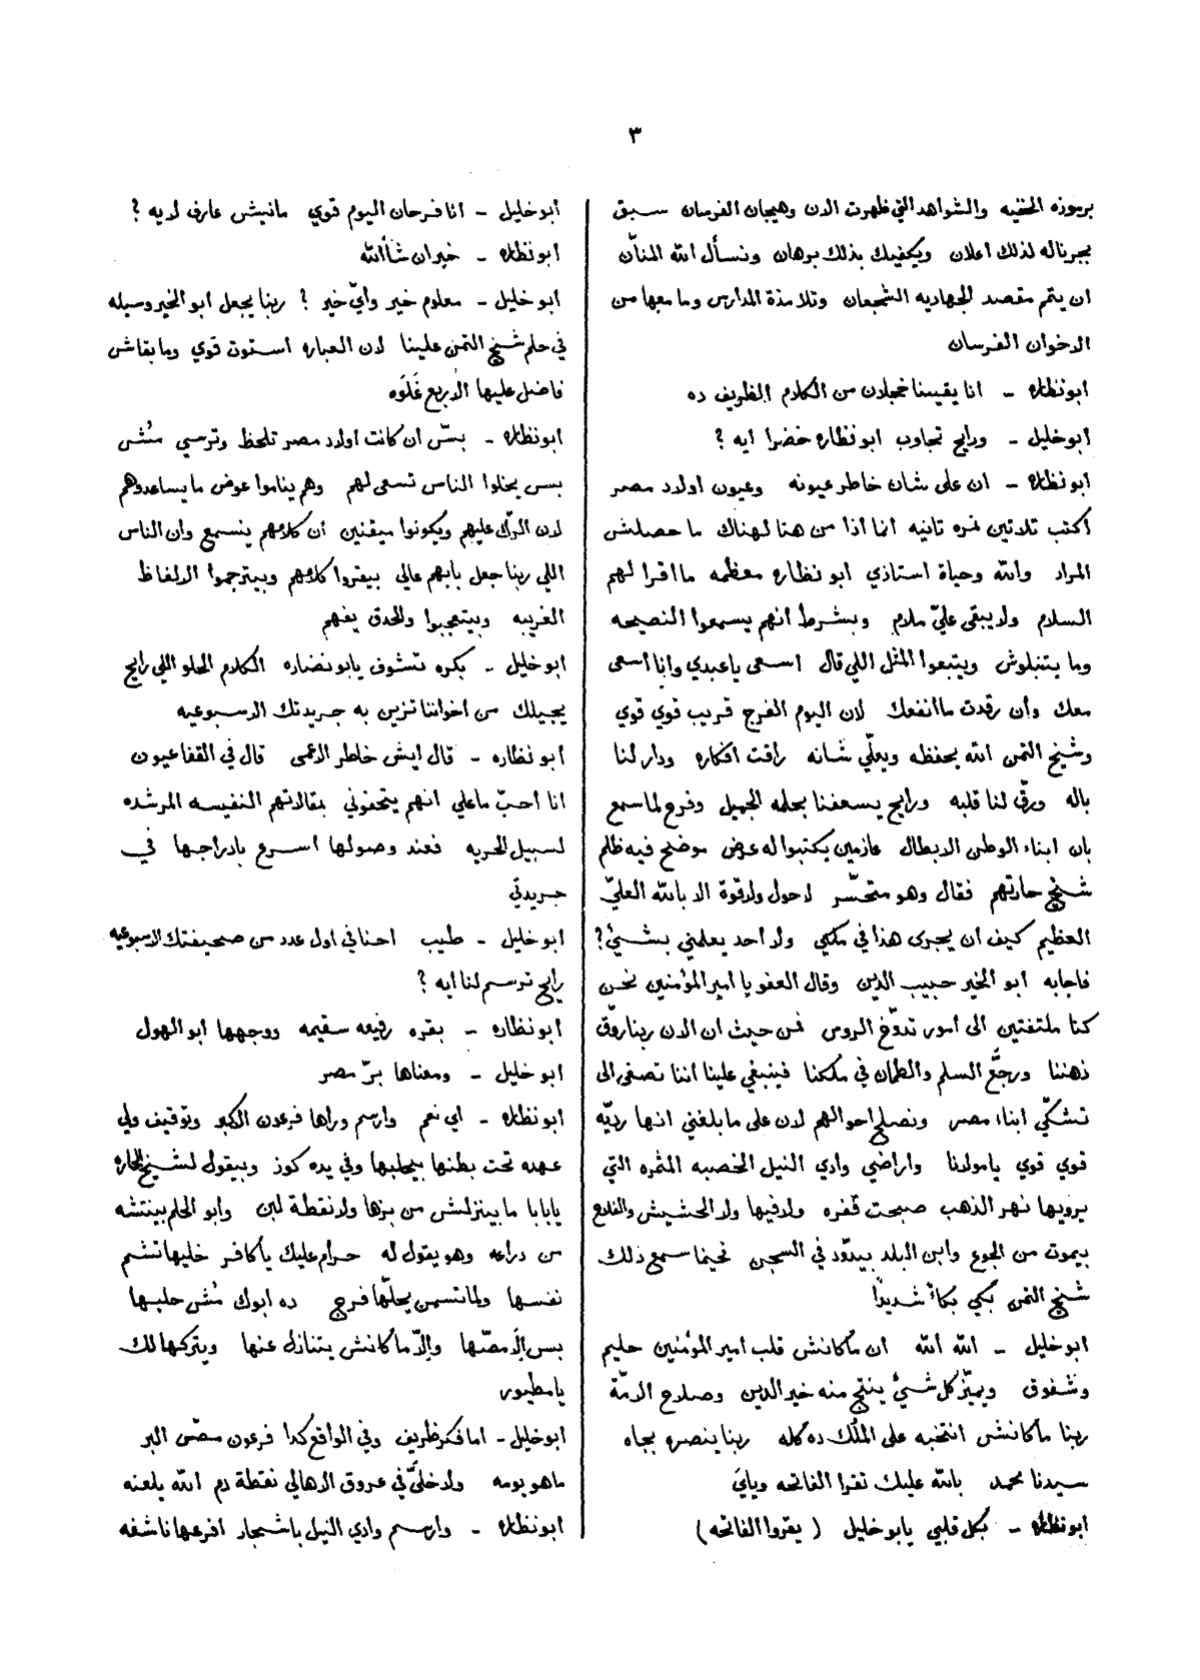 ٣
برموزه الخفيه والشواهد التي ظهرت الان وهيجان الفرسان سبق
بجرناله لذلك اعلان ويكفيك بذلك برهان ونسأل الله المنّان
ان يتم مقصد الجهاديه الشجعان وتلامذة المدارس وما معها من
الاخوان الفرسان
ابونظاره - انا يقينا خجلان من الكلام الظريف ده
ابوخليل - ورايح تجاوب ابونظاره خضرا ايه ؟
ابونظاره - ان على شان خاطر عيونه وعيون اولاد مصر
أكتب تلاتين نمره تانيه انما اذا من هنا لهناك ما حصلش
المراد والله وحياة استاذي ابو نظاره معظمه ما اقرا لهم
السلام ولا يبقى عليّ ملام وبشرط انهم يسمعوا النصيحه
وما يتنبلوش ويتبعوا المثل اللي قال اسعى يا عبدي وانا اسعى
معك وأن رقدت ما انفعك لان اليوم الفرج قريب قوي قوي
وشيخ التمن الله يحفظه ويعلّي شانه راقت افكاره ودار لنا
باله ورقّ لنا قلبه ورايح يسعفنا بحلمه الجميل وفرح لما سمع
بان ابناء الوطن الابطال عازمين يكتبوا له عرض موضح فيه ظلم
شيخ حارتهم فقال وهو متحسّر لا حول ولا قوة الا بالله العليّ
العظيم كيف ان يجرى هذا في ملكي ولا احد يعلمني بشيئ؟
فاجابه ابو الخير حبيب الدين وقال العفو يا امير المؤمنين نحن
كنا ملتفتين الى أمور تدوّخ الروس فمن حيث ان الان ربنا روّق
ذهننا ورجّع السلم والطمان في ملكنا فينبغي علينا اننا نصغى الى
تشكّي ابناء مصر ونصلح احوالهم لان على ما بلغني انها رديّه
قوي قوي يا مولانا واراضي وادي النيل الخصبه المثمره التي
يرويها نهر الذهب صبحت قفره ولا فيها ولا الحشيش والفلاح
بيموت من الجوع وابن البلد بيدوّد في السجن فحينما سمع ذلك
شيخ التمن بكي بكاءً شديدًا
ابوخليل - الله الله ان ما كانش قلب امير المؤمنين حليم
وشفوق ويميّز كل شيئ ينتج منه خير الدين وصلاح الامّة
ربنا ما كانش انتخبه على الملك ده كله ربنا ينصره بجاه
سيدنا محمد بالله عليك تقرا الفاتحه ويايَ
ابونظاره - بكل قلبي يابوخليل ( يقروا الفاتحه )
ابوخليل - انا فرحان اليوم قوي مانيش عارف لايه ؟
ابونظاره - خير ان شأالله
ابوخليل - معلوم خير وأيّ خير ؟ ربنا يجعل ابو الخير وسيله
في حلم شيخ التمن علينا لان العباره استوت قوي وما بقاش
فاضل عليها الّا ربع غَلَوَه
ابونظاره - بسّ ان كانت اولاد مصر تلحظ وترسي مُش
بس يخلوا الناس تسعى لهم وهم يناموا عوض ما يساعدوهم
لان الدّرك عليهم ويكونوا ميقنين أن كلامهم ينسمع وان الناس
اللي ربنا جعل بابهم عالي بيقروا كلامهم وبيترجموا الالفاظ
الغريبه وبيتعجبوا والحدق يفهم
ابوخليل - بكره تشوف يابونضاره الكلام الحلو اللي رايح
يجيلك من أخواننا تزين به جريدتك الاسبوعيه
ابو نظاره - قال ايش خاطر الاعمى قال في القفا عيون
انا أحبّ ما علي انهم يتحفوني بمقالاتهم النفيسه المرشده
لسبيل الحريه فعند وصولها اسرع بادراجها في
جريدتي
ابوخليل - طيب احنا في اول عدد من صحيفتك الاسبوعيه
رايح ترسم لنا ايه ؟
ابونظاره - بقره رفيعه سقيمه ووجهها ابو الهول
ابوخليل - ومعناها برّ مصر
ابونظاره - اي نعم وارسم وراها فرعون الكبير وتوقيف ولي
عهده تحت بطنها بيحلبها وفي يده كوز وبيقول لشيخ الحاره
يابابا ما بينزلش من بزها ولا نقطة لبن وأبو الحلم بينتشه
من دراعه وهو يقول له حرام عليك يا كافر خليها تشم
نفسها ولما تسمن يحلّها فرج ده ابوك مُش حلبها
بس الّا مصّها والّا ما كانش يتنازل عنها ويتركها لك
يا مطيور
ابوخليل - اما فكر ظريف وفي الواقع كدا فرعون مصّى البر
ماهو يومه ولا خلّى في عروق الاهالي نقطة دم الله يلعنه
ابونظاره - وارسم وادي النيل باشجار افرعها ناشفه